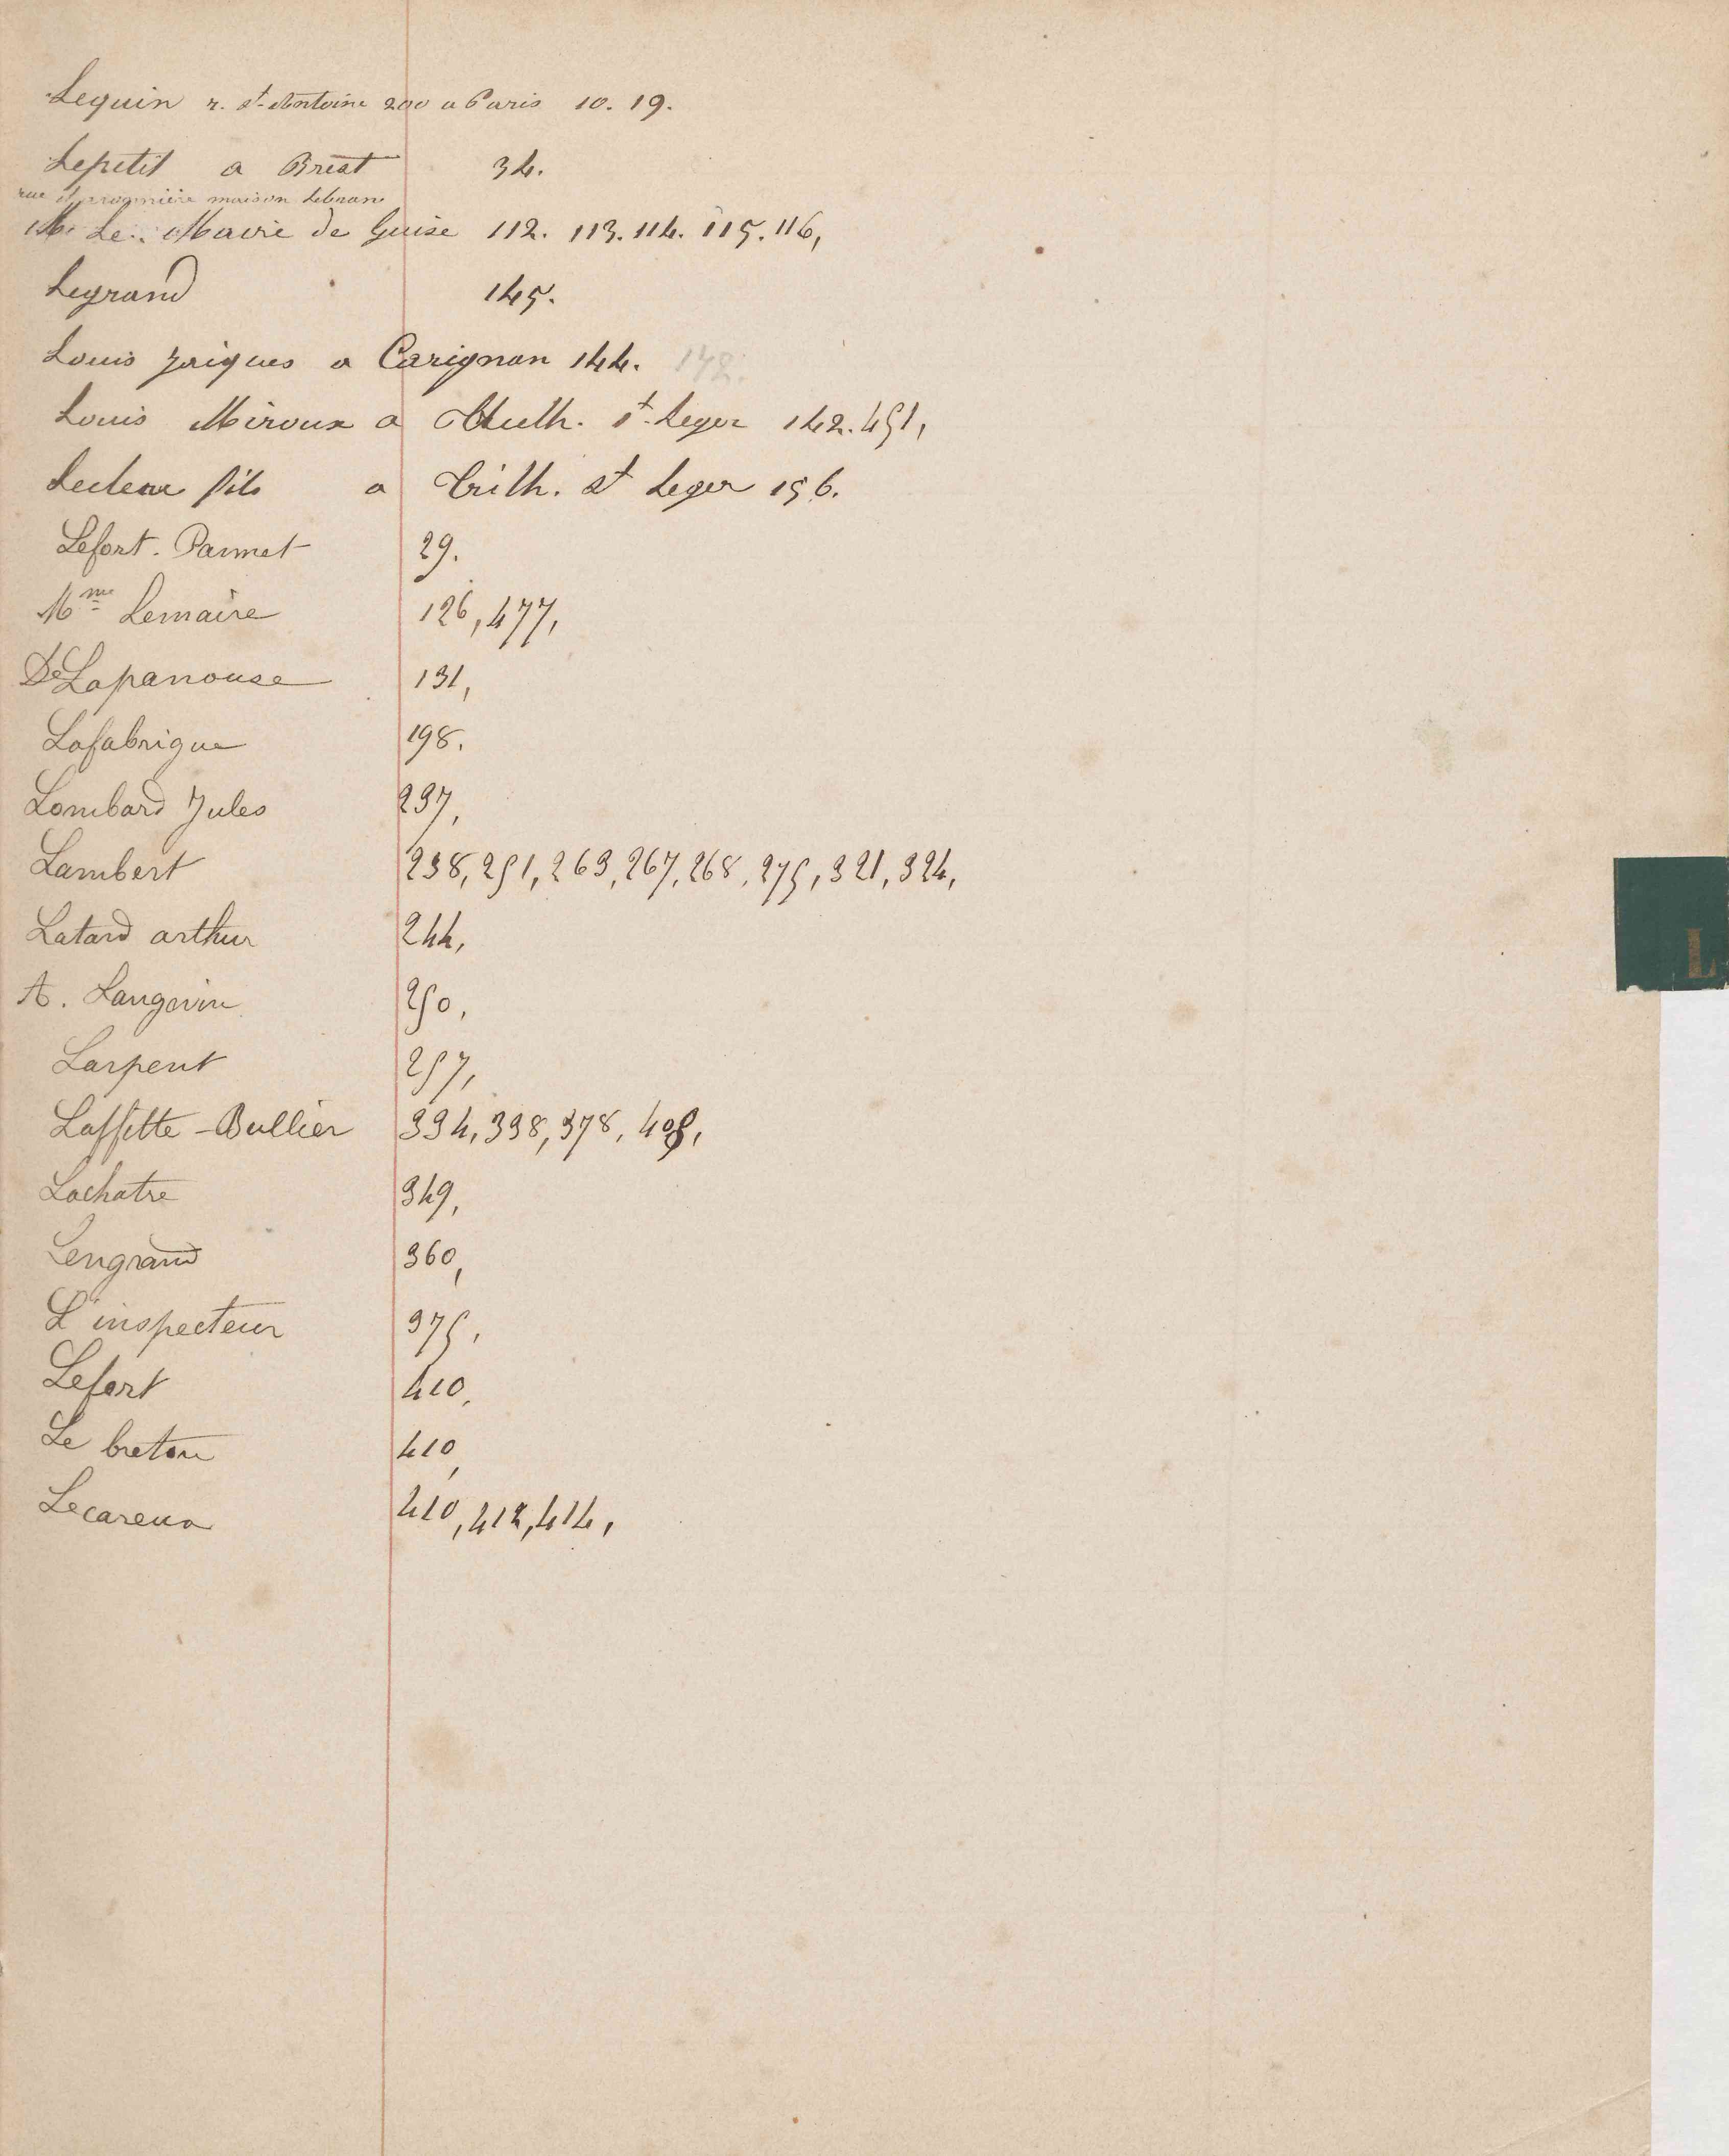 Lequin r. St-Antoine 200 a Paris 10. 19.
Lepetit a Brest 34.
rue maison Lebrun
Mr Le Maire de Guise 112. 113. 114. 115. 116,
Legrand 145.
Louis Jaiques a Carignan 144. 142.
Louis Miroux a St Leger 142. 451,
Leclerc fils a Trith. St Leger 156.
Lefort. Parmet 29.
Mme Lemaire 126, 477,
De Lapanouse 131,
Lafabrigue 198.
Lombard Jules 237,
Lambert 238, 251, 263, 267, 268, 275, 321, 324,
Latard arthur 244,
A. Langevin 250,
Larpent 257,
Laffitte - Bullier 334, 338, 378, 408,
Lachatre 349,
Lengrand 360,
L'inspecteur 375,
Lefort 410,
Le breton 410,
Lecareux 410, 412, 414,
L